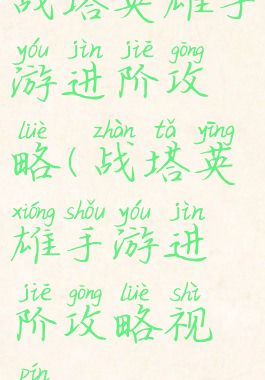 战塔英雄手
yóu jìn jiē gōng
游进阶攻
lüè zhàn tǎ yīng
略(战塔英
xióng shǒu yóu jìn
雄手游进
jiē gōng lüè shì
阶攻略视
pín